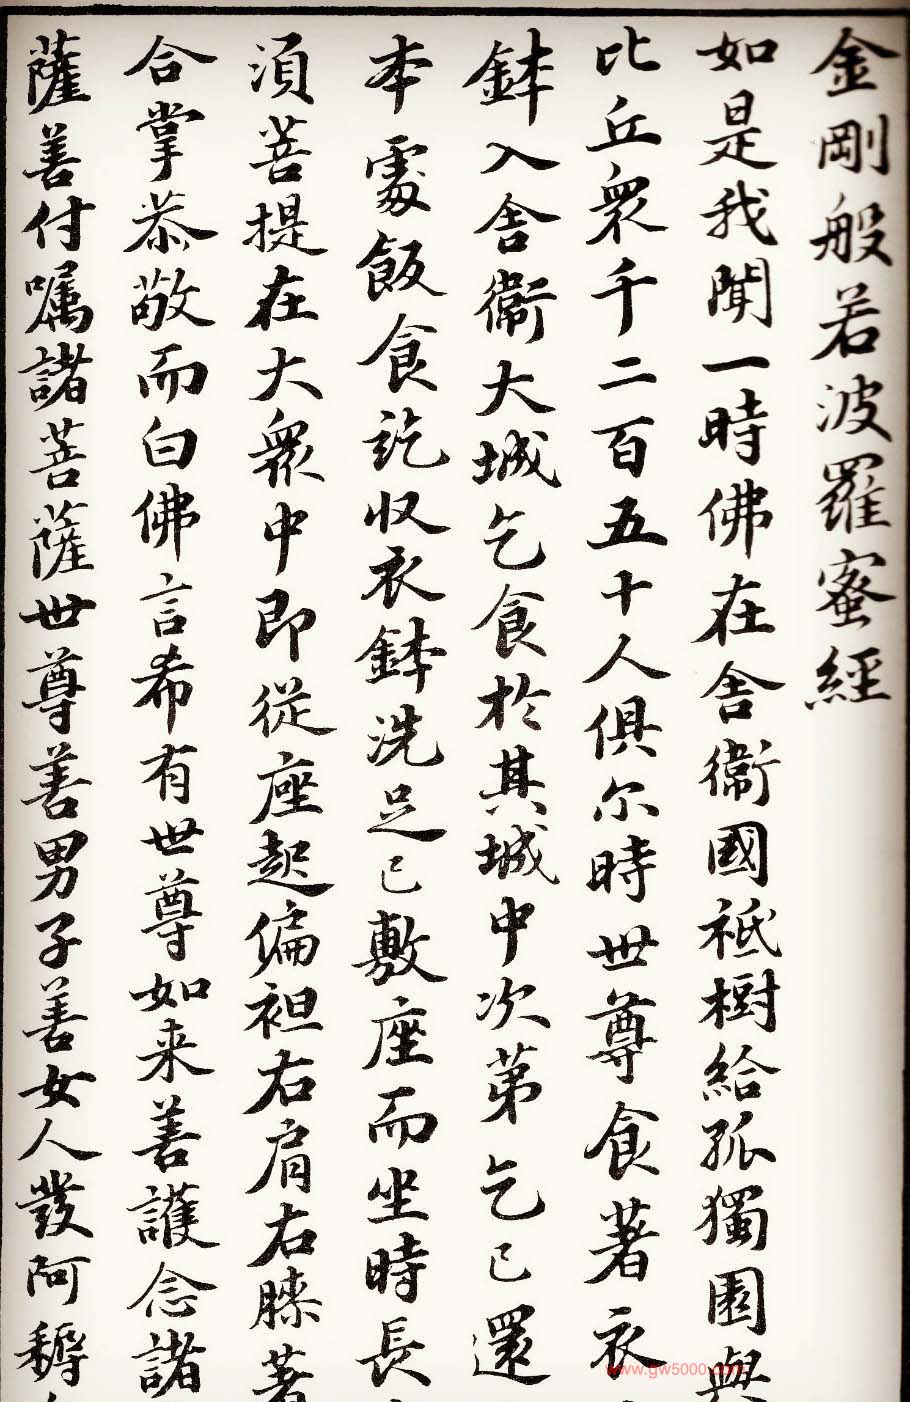 金剛般若波羅蜜經
如是我聞一時佛在舎衛國祇樹給孤獨園與
比丘衆千二百五十人俱尔時世尊食著衣
鉢入舎衛大城乞食於其城中次第乞已還
本處飯食訖收衣鉢洗足已敷座而坐時長
須菩提在大衆中即從座起偏袒右肩右膝著
合掌恭敬而白佛言希有世尊如来善護念諸
薩善付囑諸菩薩世尊善男子善女人發阿耨
www.gw5000.com